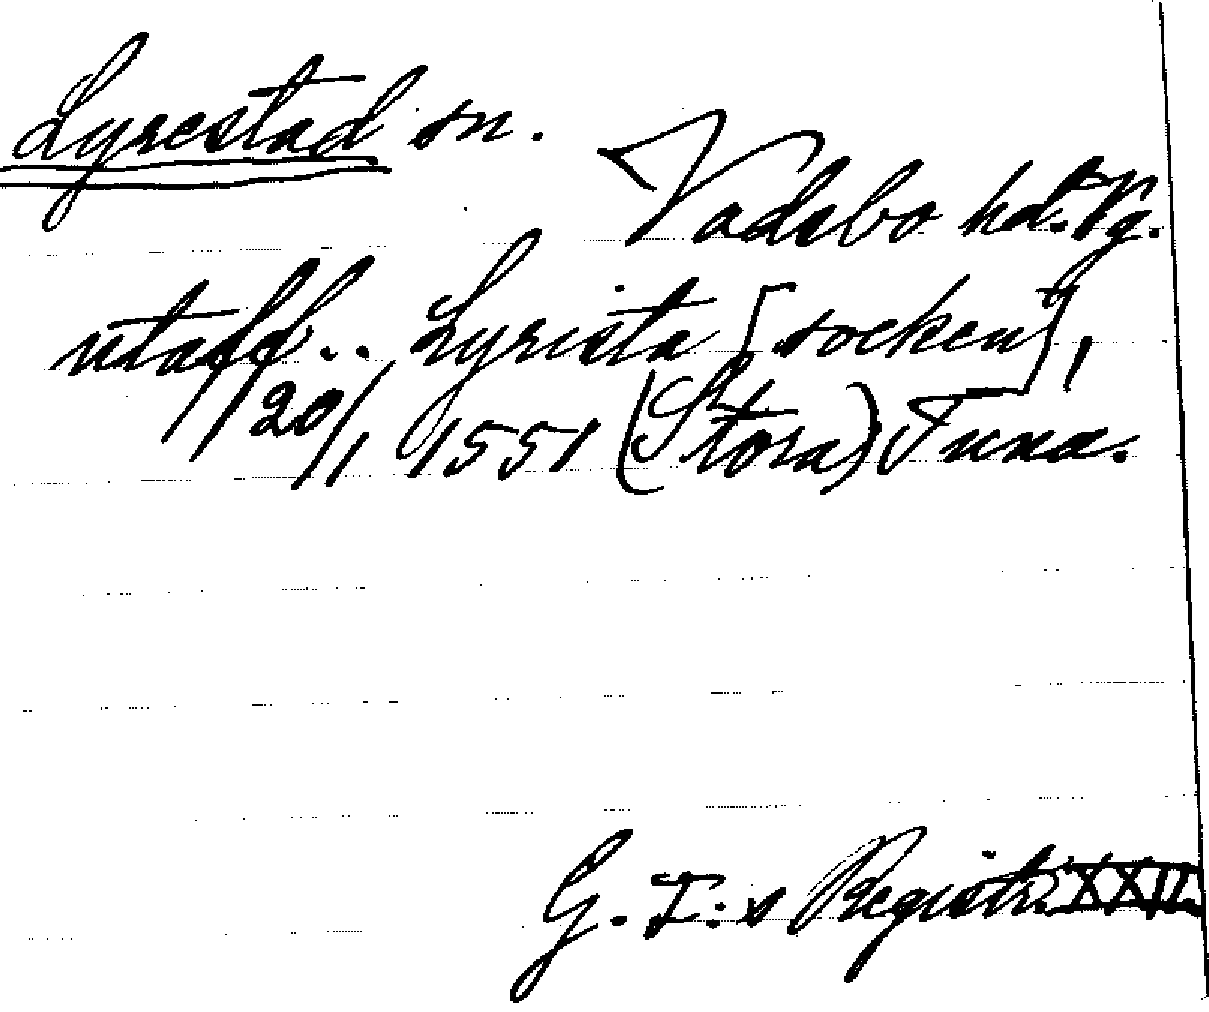 Lyrestad sn.
Vadsbo hd. Vg.
utaff .. Lyrista [socken],
20/1 1551 (Stora) Tuna.
G. I:s Registr. XXII.